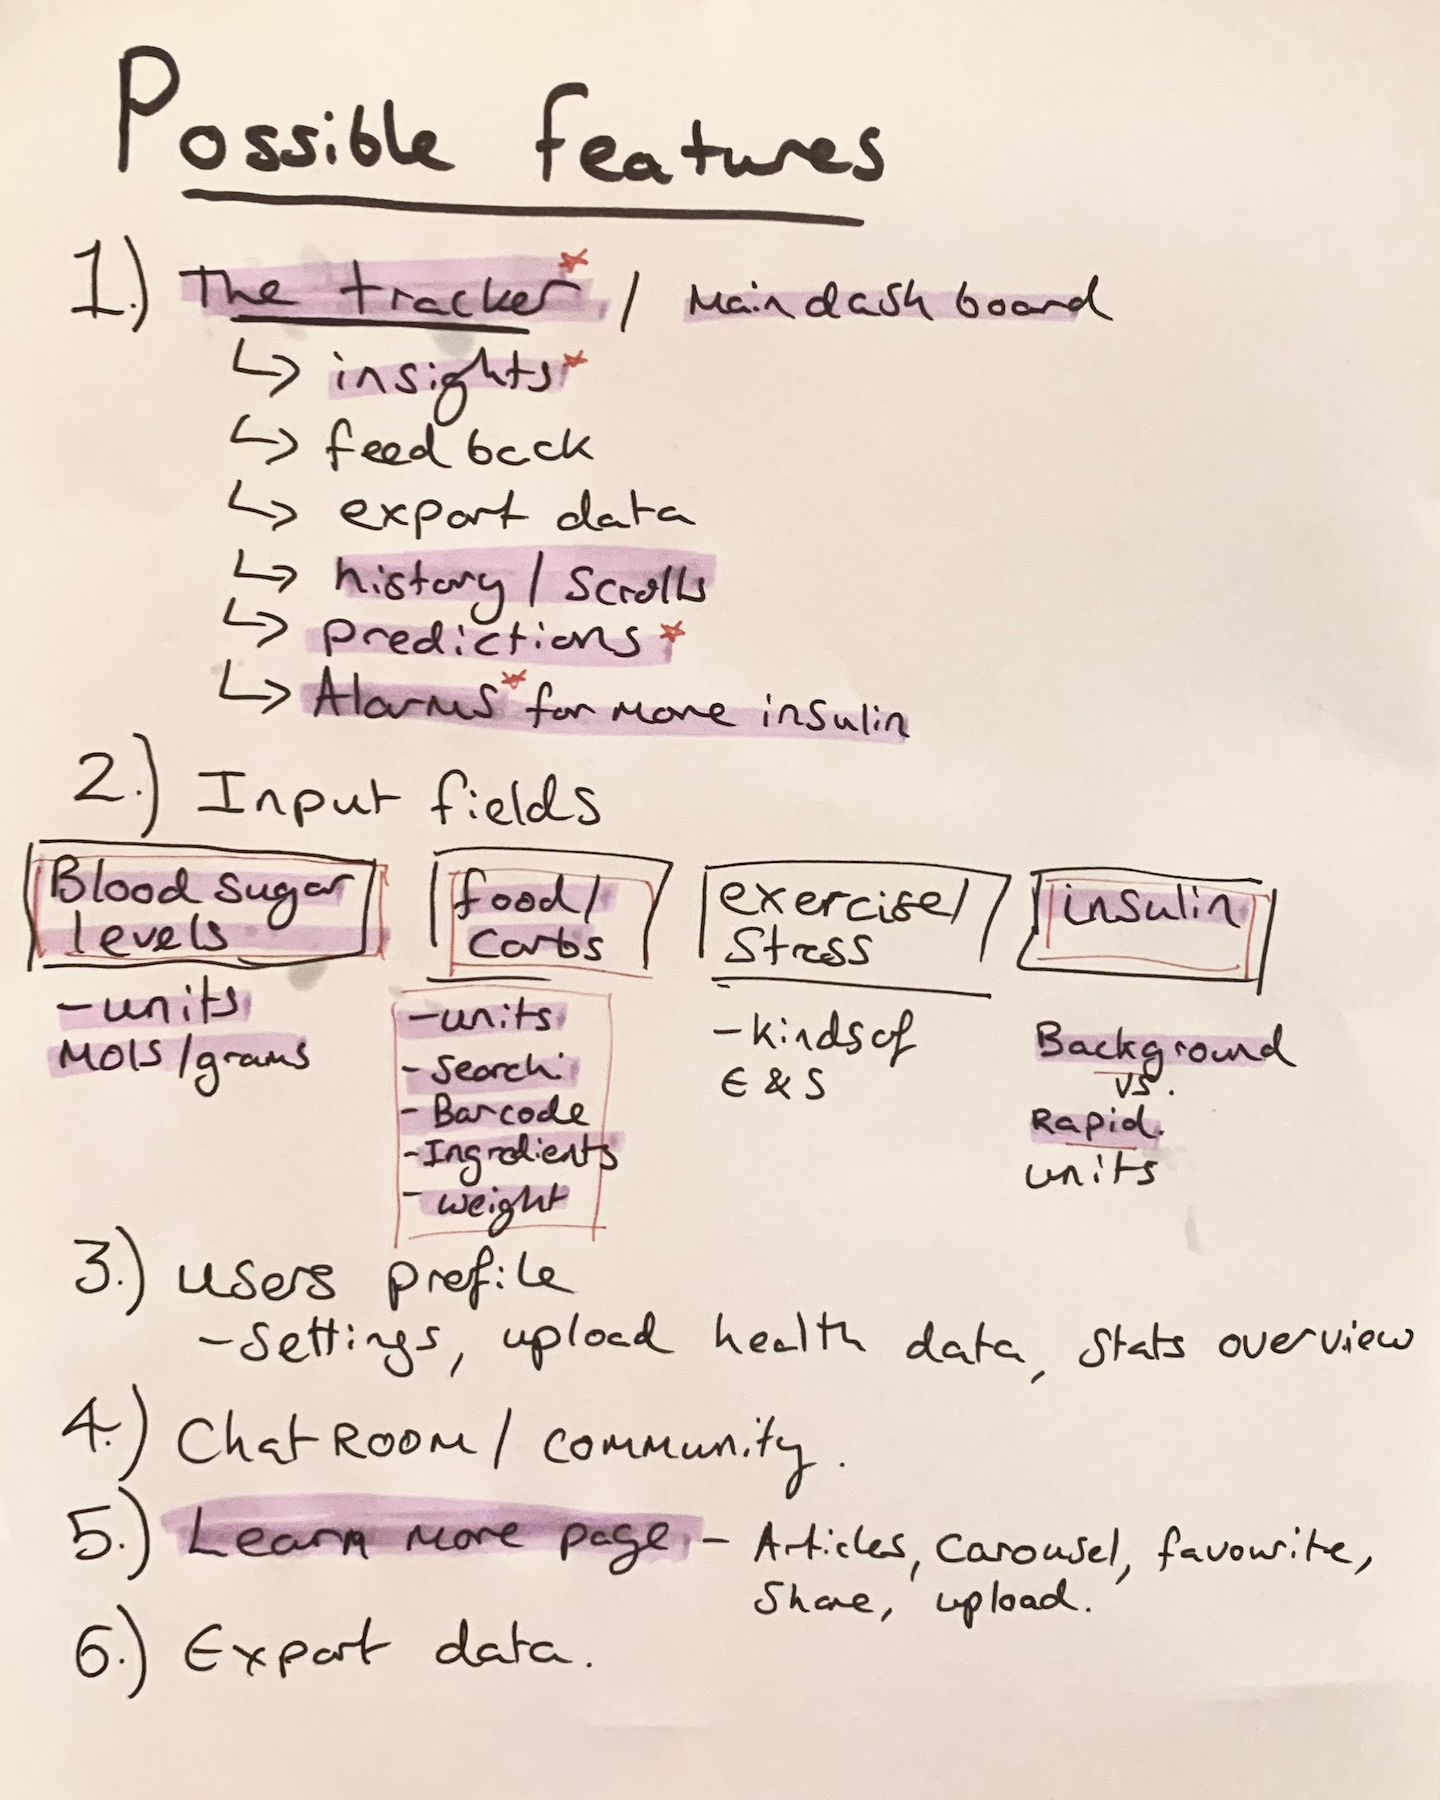 Possible features
1.) The tracker* / Main dashboard
↳ insights*
↳ feedback
↳ export data
↳ history / Scrolls
↳ predictions*
↳ Alarms* for more insulin
2.) Input fields
Blood sugar levels
- units
MOLS/grams
food/ Carbs
- units
- Search
- Barcode
- Ingredients
- weight
exercise/ Stress
- kinds of
E & S
insulin
Background
vs.
Rapid.
units
3.) users profile
- Settings, upload health data, Stats overview
4.) Chat ROOM / community.
5.) Learn more page - Articles, Carousel, favourite,
Share, upload.
6.) Export data.